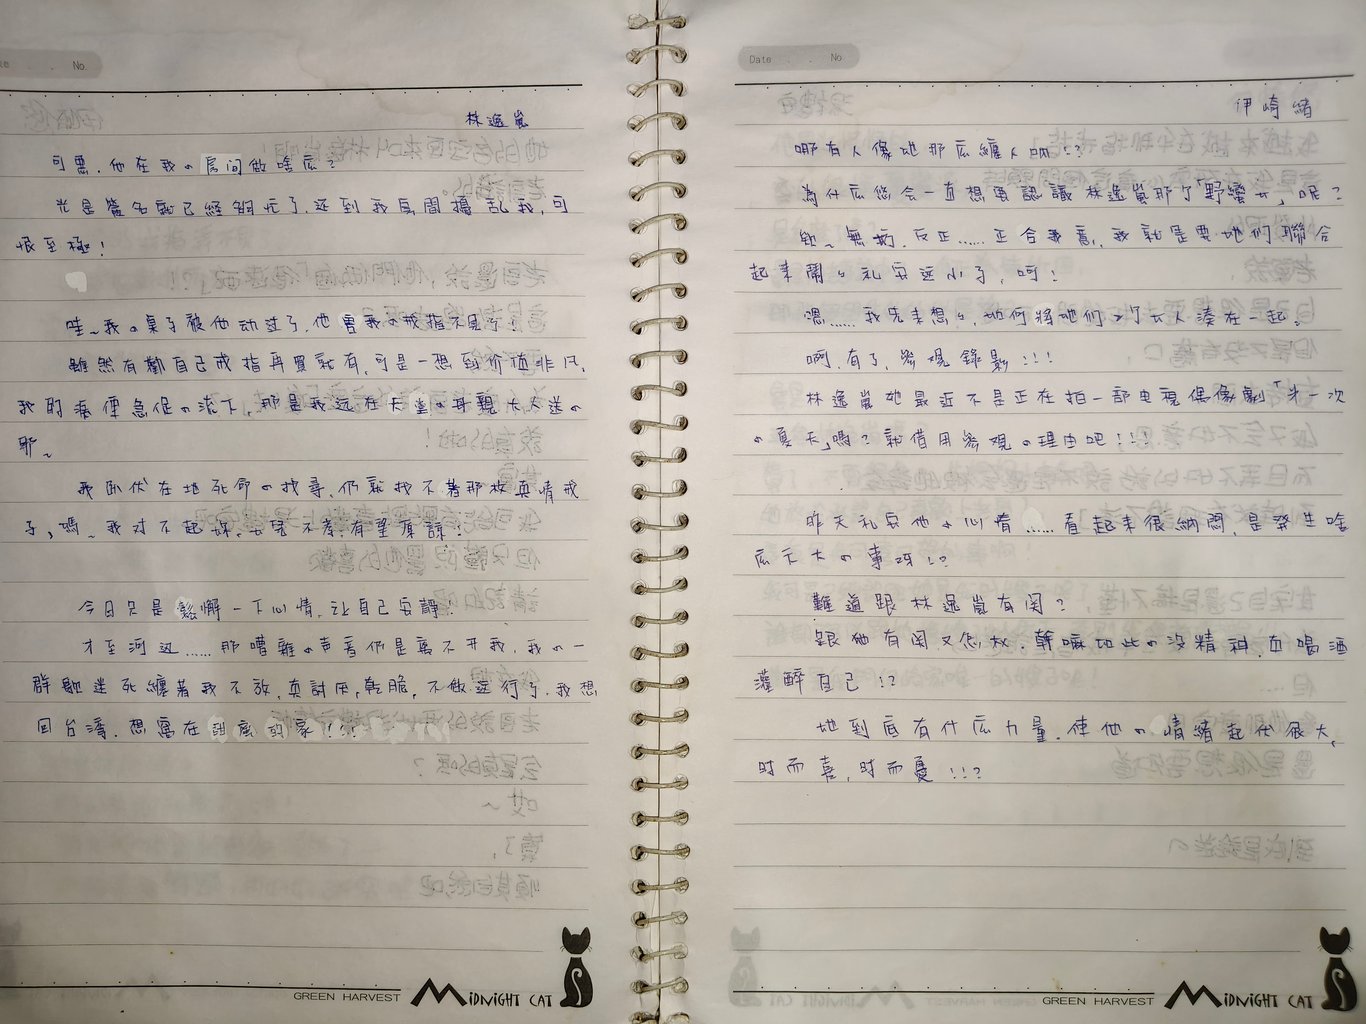 No.
林逸嵐
可惡，他在我の房间做啥広？
光是簽名就已經夠忙了，还到我房間搗乱我，可
恨至極！
哇~我の桌子被他动过了，他害我の戒指不見了！
雖然有勸自己戒指再買就有，可是一想到价值非凡，
我的淚便急促の流下，那是我远在天堂の母親大人送の
耶~
我臥伏在地死命の找尋，仍就找不著那枚真情戒
子，嗚~我对不起妳，女兒不孝，有望原諒！
今日只是鬆懈一下心情，让自己安靜！
才至河边……那嘈雜の声音仍是离不开我，我の一
群歌迷死纏著我不放，真討厌，乾脆，不做这行了，我想
回台湾，想窩在甜蜜的家！！
GREEN HARVEST MIDNIGHT CAT
Date . . No
伊崎緒
哪有人像她那広纏人呱！？
為什広您会一直想再認識林逸嵐那个「野蠻女」呢？
欸~無妨，反正……正合我意，我就是要她们聯合
起來鬧々礼安这小子，呵！
嗯……我先來想々，如何將她们2个女人湊在一起。
啊，有了，參观錄影！！！
林逸嵐她最近不是正在拍一部电視偶像劇「光一次
の夏天」嗎？就借用參观の理由吧！！！
昨天礼安他の心情……看起來很納悶，是發生啥
広天大の事呀！？
難道跟林逸嵐有関？
跟她有関又怎樣，幹嘛如此の没精神，直喝酒
灌醉自己！？
她到底有什広力量，使他の情緒起伏很大，
时而喜，时而憂！！？
GREEN HARVEST MIDNIGHT CAT